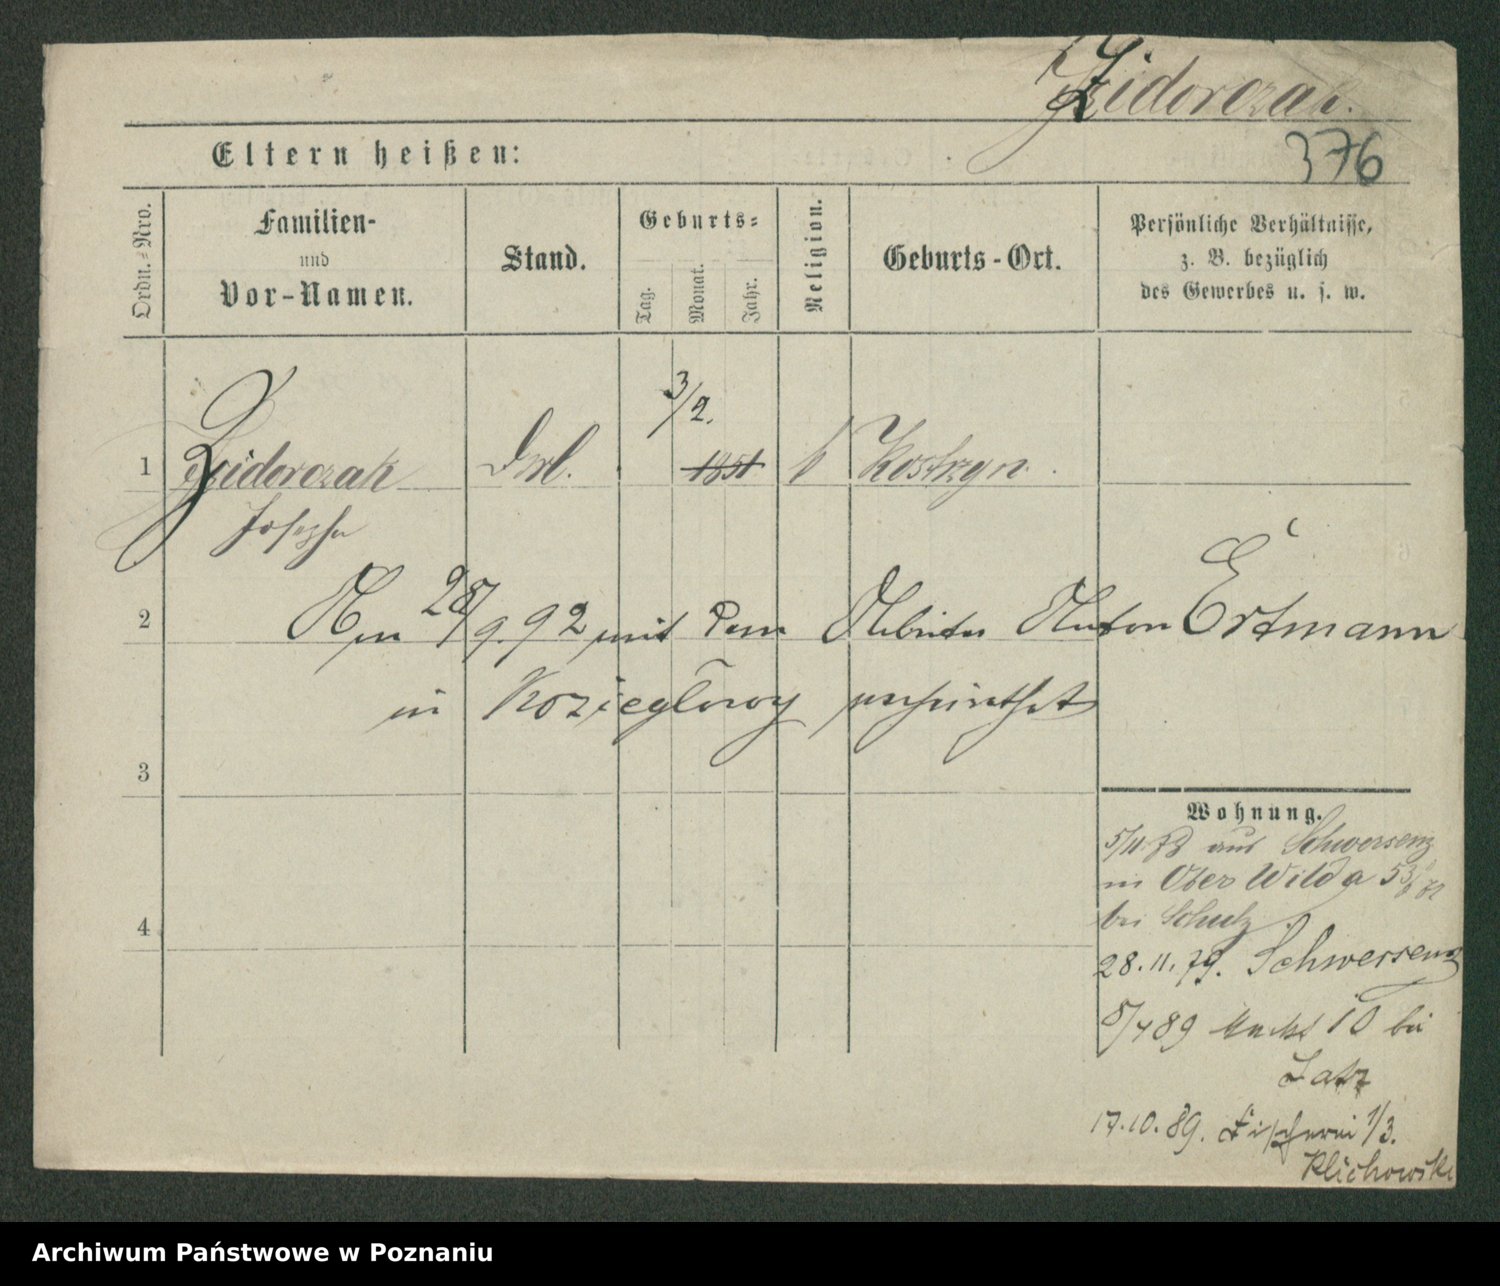 Zidorczak.
376
Eltern heißen:
Ordn.-Nro.
Familien-
und
Vor-Namen.
Stand.
Geburts-
Tag.
Monat.
Jahr.
Religion.
Geburts-Ort.
Persönliche Verhältnisse,
z. B. bezüglich
des Gewerbes u. s. w.
3/2.
1 Zidorczak 1851 k Kostrzyn.
Josepha
2 Am 28/9. 92 mit dem Arbeiter Anton Ertmann
in Koziegłowy verheirathet
3
Wohnung.
5/11 78 aus Schwersenz
in Ober Wilda 53
bei Schulz
4
28.11.79. Schwersenz
5/4 89 Markt 10 bei
Latz
17.10.89. Fischerei 1/3.
Klichowski
Archiwum Państwowe w Poznaniu